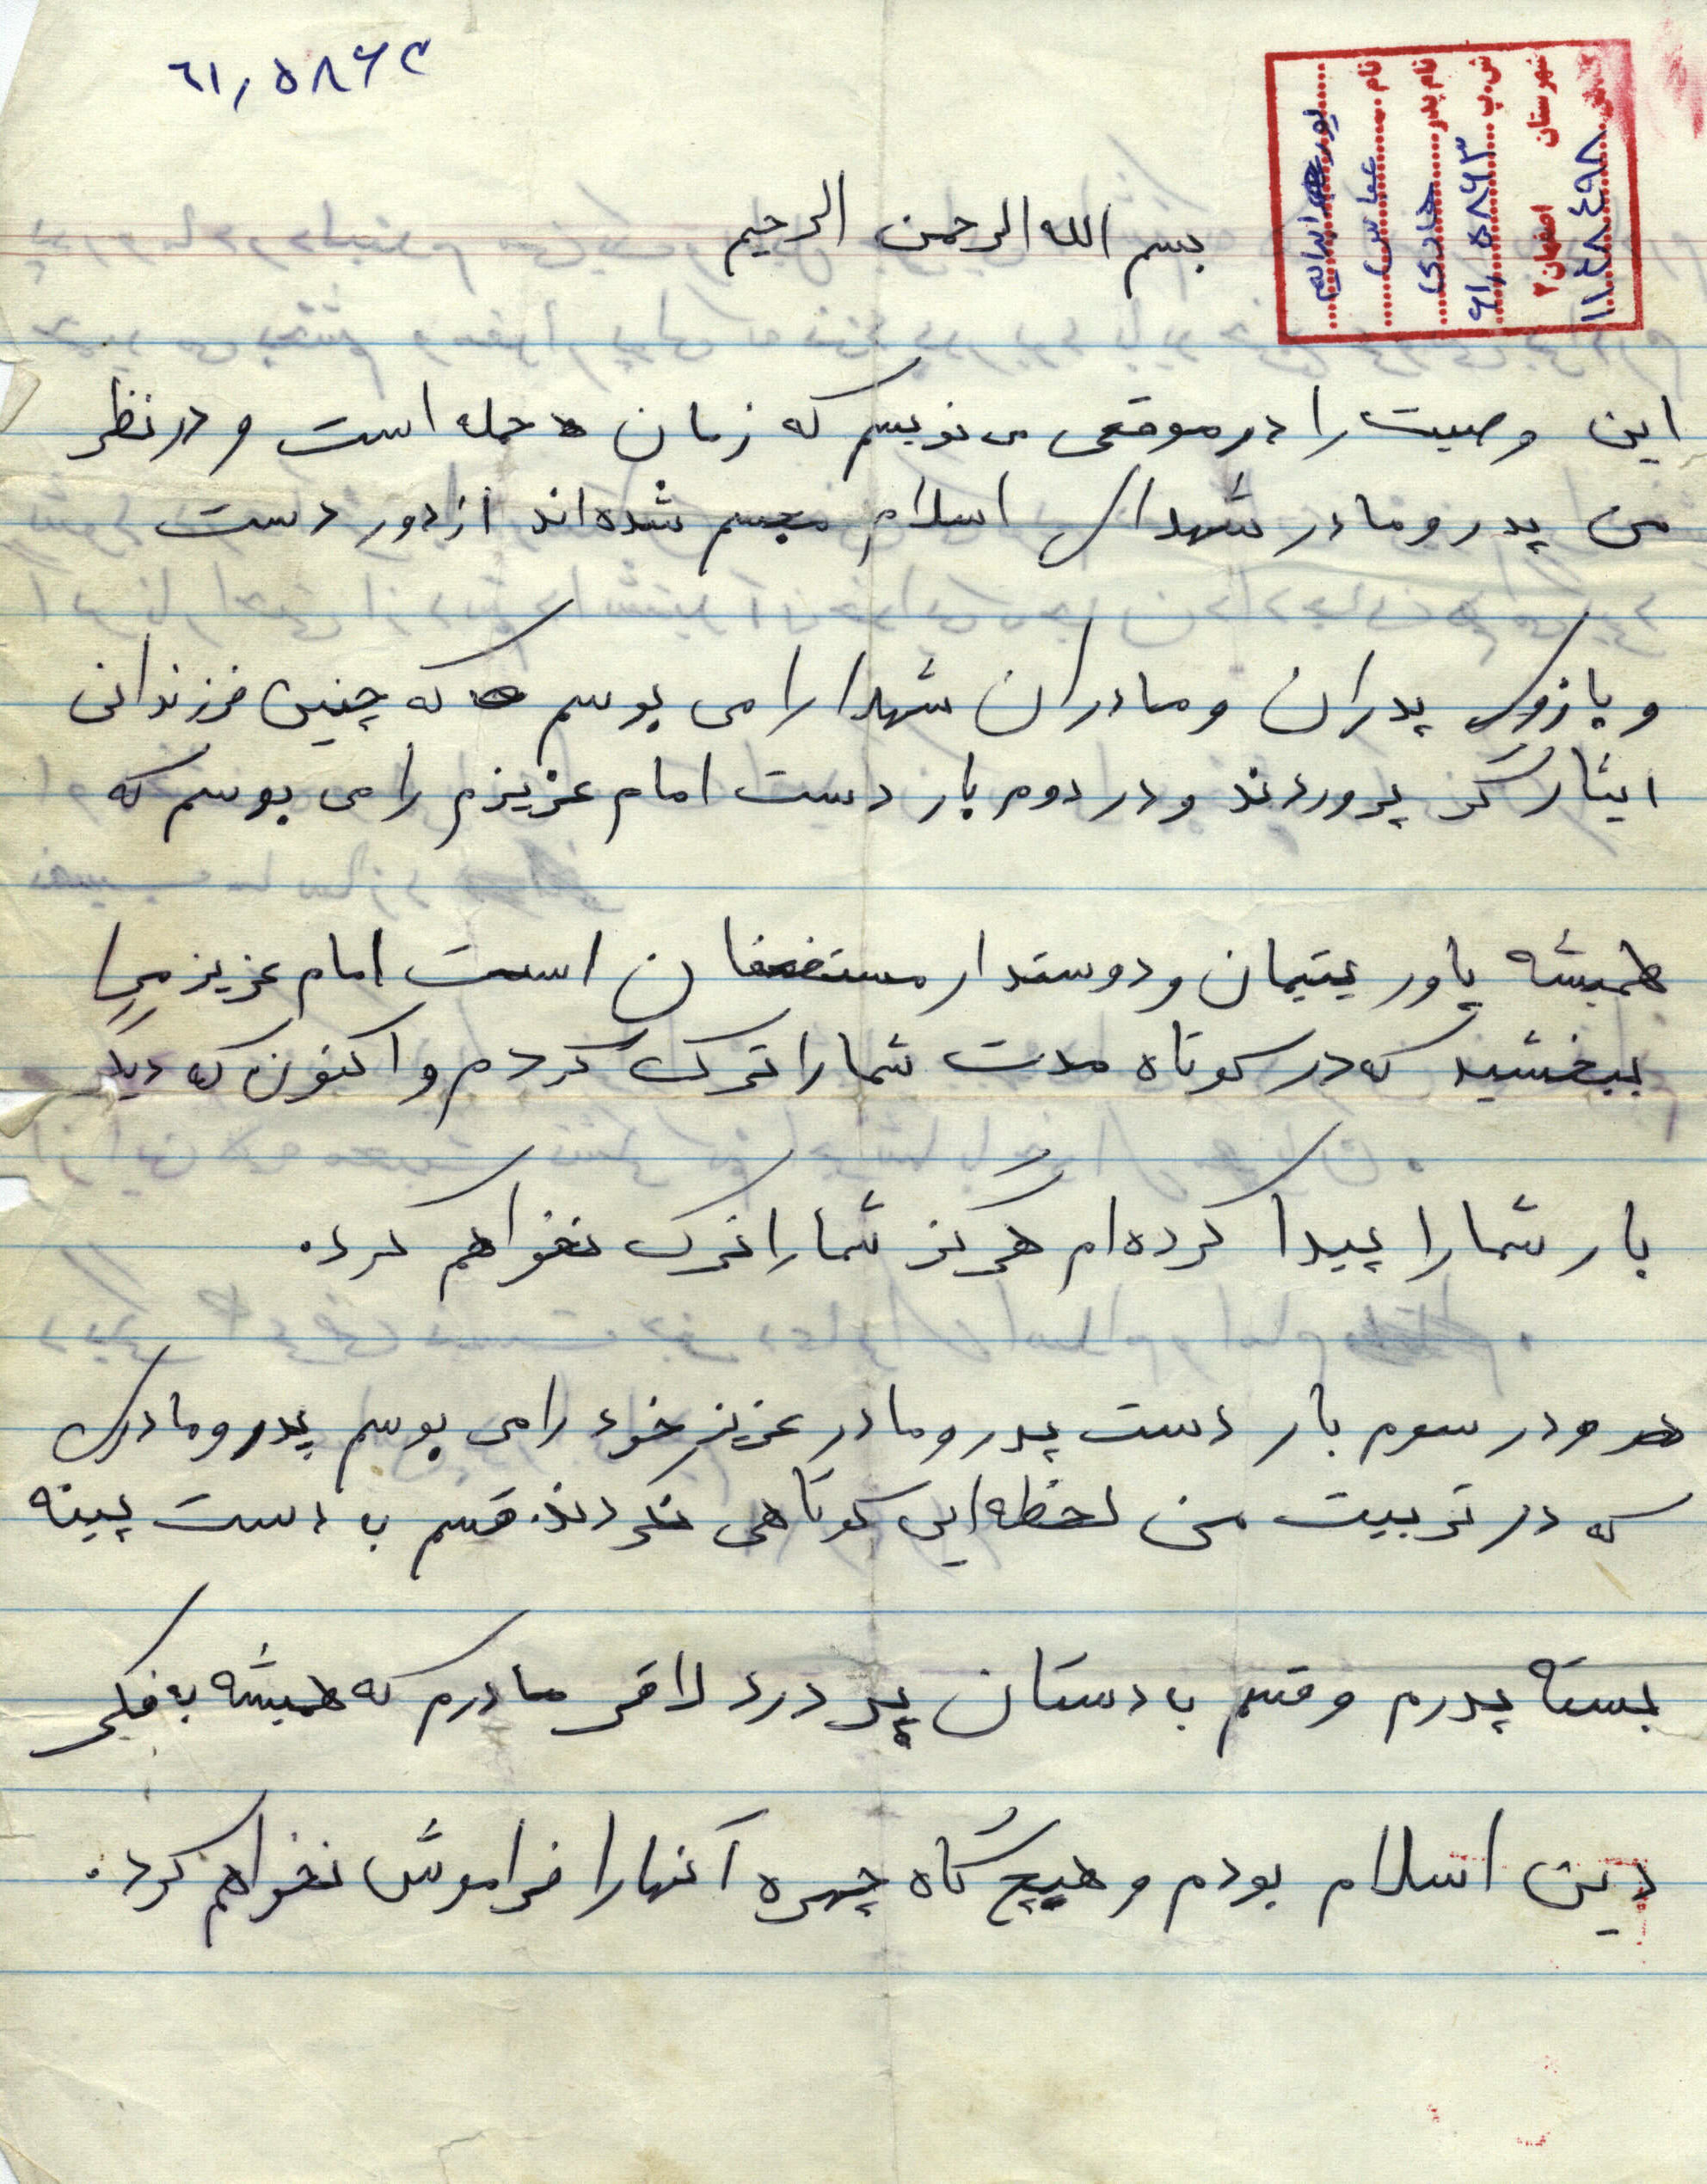 ۶۱٫۵۸۶۳
نام
عباس
نام پدر
هادی
ش.پ
۶۱٫۵۸۶۳
شهرستان اصفهان ۲
۱۱۲۸۴۹۸
بسم الله الرحمن الرحیم
این وصیت را در موقعی می نویسم که زمان حمله است و در نظر
من پدر و مادر شهدای اسلام مجسم شده‌اند از دور دست
و بازوی پدران و مادران شهدا را می بوسم که چنین فرزندانی
ایثارگر پروردند و در دوم بار دست امام عزیزم را می بوسم که
همیشه یاور یتیمان و دوستدار مستضعفان است امام عزیز مرا
ببخشید که در کوتاه مدت شما را ترک کردم و اکنون که دیگر
بار شما را پیدا کرده‌ام هرگز شما را ترک نخواهم کرد.
و در سوم بار دست پدر و مادر عزیز خود را می بوسم پدر و مادری
که در تربیت من لحظه‌ایی کوتاهی نکردند. قسم ب دست پینه
بسته پدرم و قسم ب دستان پر درد لاقر مادرم که همیشه به فکر
دین اسلام بودم و هیچ گاه چهره آنها را فراموش نخواهم کرد.